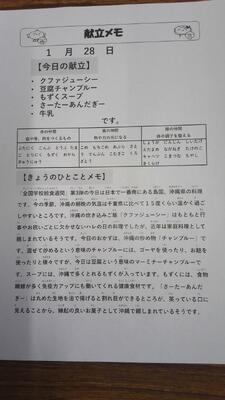 献立メモ
1 月 28 日
【今日の献立】
・ クファジューシー
・ 豆腐チャンプルー
・ もずくスープ
・ さーたーあんだぎー
・ 牛乳
です。
赤の仲間 黄の仲間 緑の仲間
【きょうのひとことメモ】
「全国学校給食週間」第3弾の今日は日本で一番南にある島国、沖縄県の料理
です。今の季節、沖縄の朝晩の気温は千葉県に比べて15度くらい温かく過ご
しやすいところです。沖縄の炊き込みご飯「クファジューシー」はもともと行
事やお祝いごとに欠かせないハレの日の料理でしたが、近年は家庭料理として
親しまれているそうです。今日のおかずは、沖縄の炒め物「チャンプルー」で
す。混ぜて炒めるという意味のチャンプルーには、ゴーヤを使ったり、お麩を
使ったりと様々ですが、今日は豆腐という意味のマーミナーチャンプルーで
す。スープには、沖縄で多くとれるもずくが入っています。もずくには、食物
繊維が多く免疫力アップにも働いてくれる健康食材です。「さーたーあんだ
ぎー」は丸めた生地を油で揚げると割れ目ができるところが、笑っている口に
見えることから、縁起の良いお菓子として沖縄で親しまれているそうです。